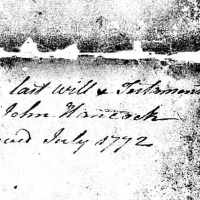 last will & Testament
John Hancock
ued July 1772